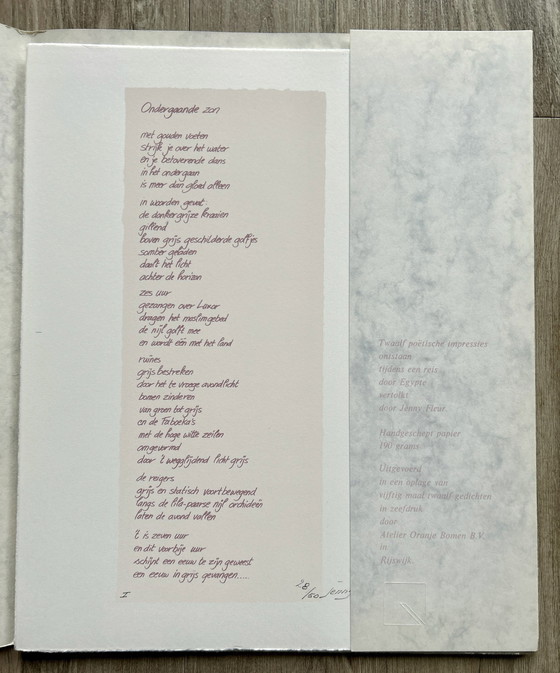 Ondergaande zon
met gouden voeten
strijk je over het water
en je betoverende dans
in het ondergaan
is meer dan gloed alleen
in woorden gevat:
de donkergrijze kraaien
gillend
boven grijs geschilderde golfjes
somber geladen
daalt het licht
achter de horizon
zes uur
gezangen over Luxor
dragen het moslimgebed
de nijl golft mee
en wordt één met het land
ruïnes
grijs bestreken
door het te vroege avondlicht
bomen zinderen
van groen tot grijs
en de Faloeka's
met de hoge witte zeilen
omgevormd
door 't wegglijdend licht grijs
de reigers
grijs en statisch voortbewegend
langs de lila-paarse nijl orchideeën
laten de avond vallen
't is zeven uur
en dit voorbije uur
schijnt een eeuw te zijn geweest
een eeuw in grijs gevangen.....
I
28/50 Jenny
Twaalf poëtische impressies
ontstaan
tijdens een reis
door Egypte
vertolkt
door Jenny Fleur.
Handgeschept papier
190 grams
Uitgevoerd
in een oplage van
vijftig maal twaalf gedichten
in zeefdruk
door
Atelier Oranje Bomen B.V.
in
Rijswijk